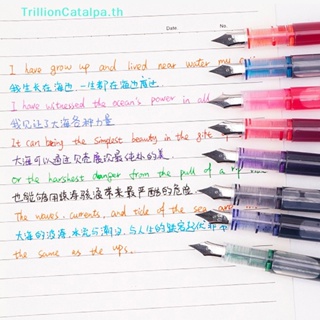 TrillionCatalpa.th
Date. No.
I have grow up and lived near water my
我生长在海边 一生都在海边度过
I have witnessed the ocean's power in all
我见证了大海各种力量
It can bring the simplest beauty in the gift
大海可以通过贝壳展示最纯朴的美
Or the harshest danger from the pull of a
也能够用
The waves, currents, and tide of the sea
大海的波浪,水流与潮汐,与人生的
the same as the ups.